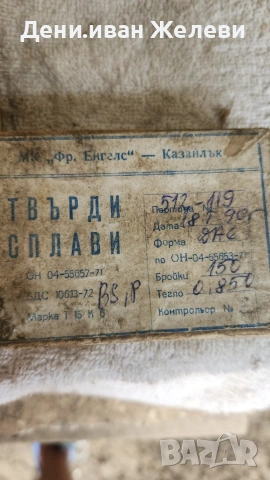 Дени.иван Желеви
МК „Фр. Енгелс" — Казанлък
ТВЪРДИ
СПЛАВИ
ОН 04-55657-71
БДС 10613-72
Марка Т 15 К 6
Партида № 512-119
Дата 18.7.90г
Форма
по ОН-04-55653-7
Бройки 150
Тегло 0.850
Контрольор №
bazar